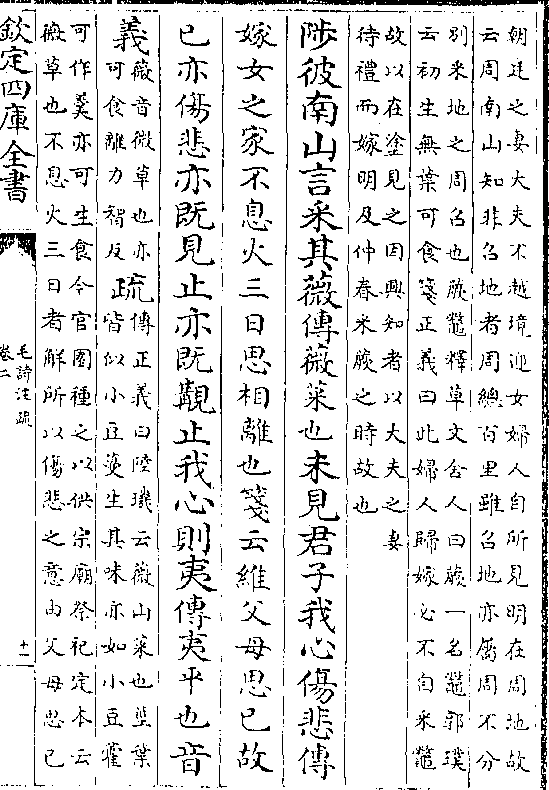 朝廷之妻大夫不越境迎女婦人自所見明在周地故
云周南山知非召地者周緫百里雖召地亦屬周不分
别采地之周召也蕨鼈釋草文舍人曰蕨一名鼈郭璞
云初生無葉可食箋正義曰此婦人歸嫁必不自采鼈
故以在塗見之因興知者以大夫之妻
待禮而嫁明及仲春采蕨之時故也
陟彼南山言采其薇傳薇菜也未見君子我心傷悲傳
嫁女之家不息火三日思相離也箋云維父母思已故
已亦傷悲亦既見止亦既覯止我心則夷傳夷平也音
義薇音微草也亦
可食離力智反
疏傳正義曰陸璣云薇山菜也莖葉
皆似小豆蔓生其味亦如小豆藿
可作羮亦可生食今官園種之以供宗廟祭祀定本云
薇草也不息火三日者解所以傷悲之意由父母思已
欽定四庫全書
毛詩注疏
卷二
十一